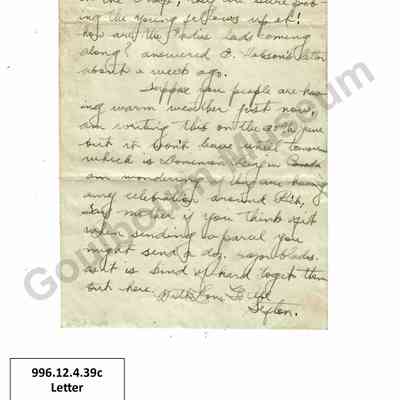 in the Village, they are sure rob-
ing the young fellows up at!
how are the lads coming
along? answered O. letter
about a week ago.
Suppose you people are hav-
ing warm weather just now,
am writing this on the 30th June
but it won't leave until tomorrow
which is Dominion Day in Canada
am wondering if they are having
any celebration around Rich,
Say mother if you think of it
when sending a parcel you
might send a doz. razor blades.
as it is kind of hard to get them
out here. With Love to all
Sefton.
Goulbourn Museum
996.12.4.39c
Letter